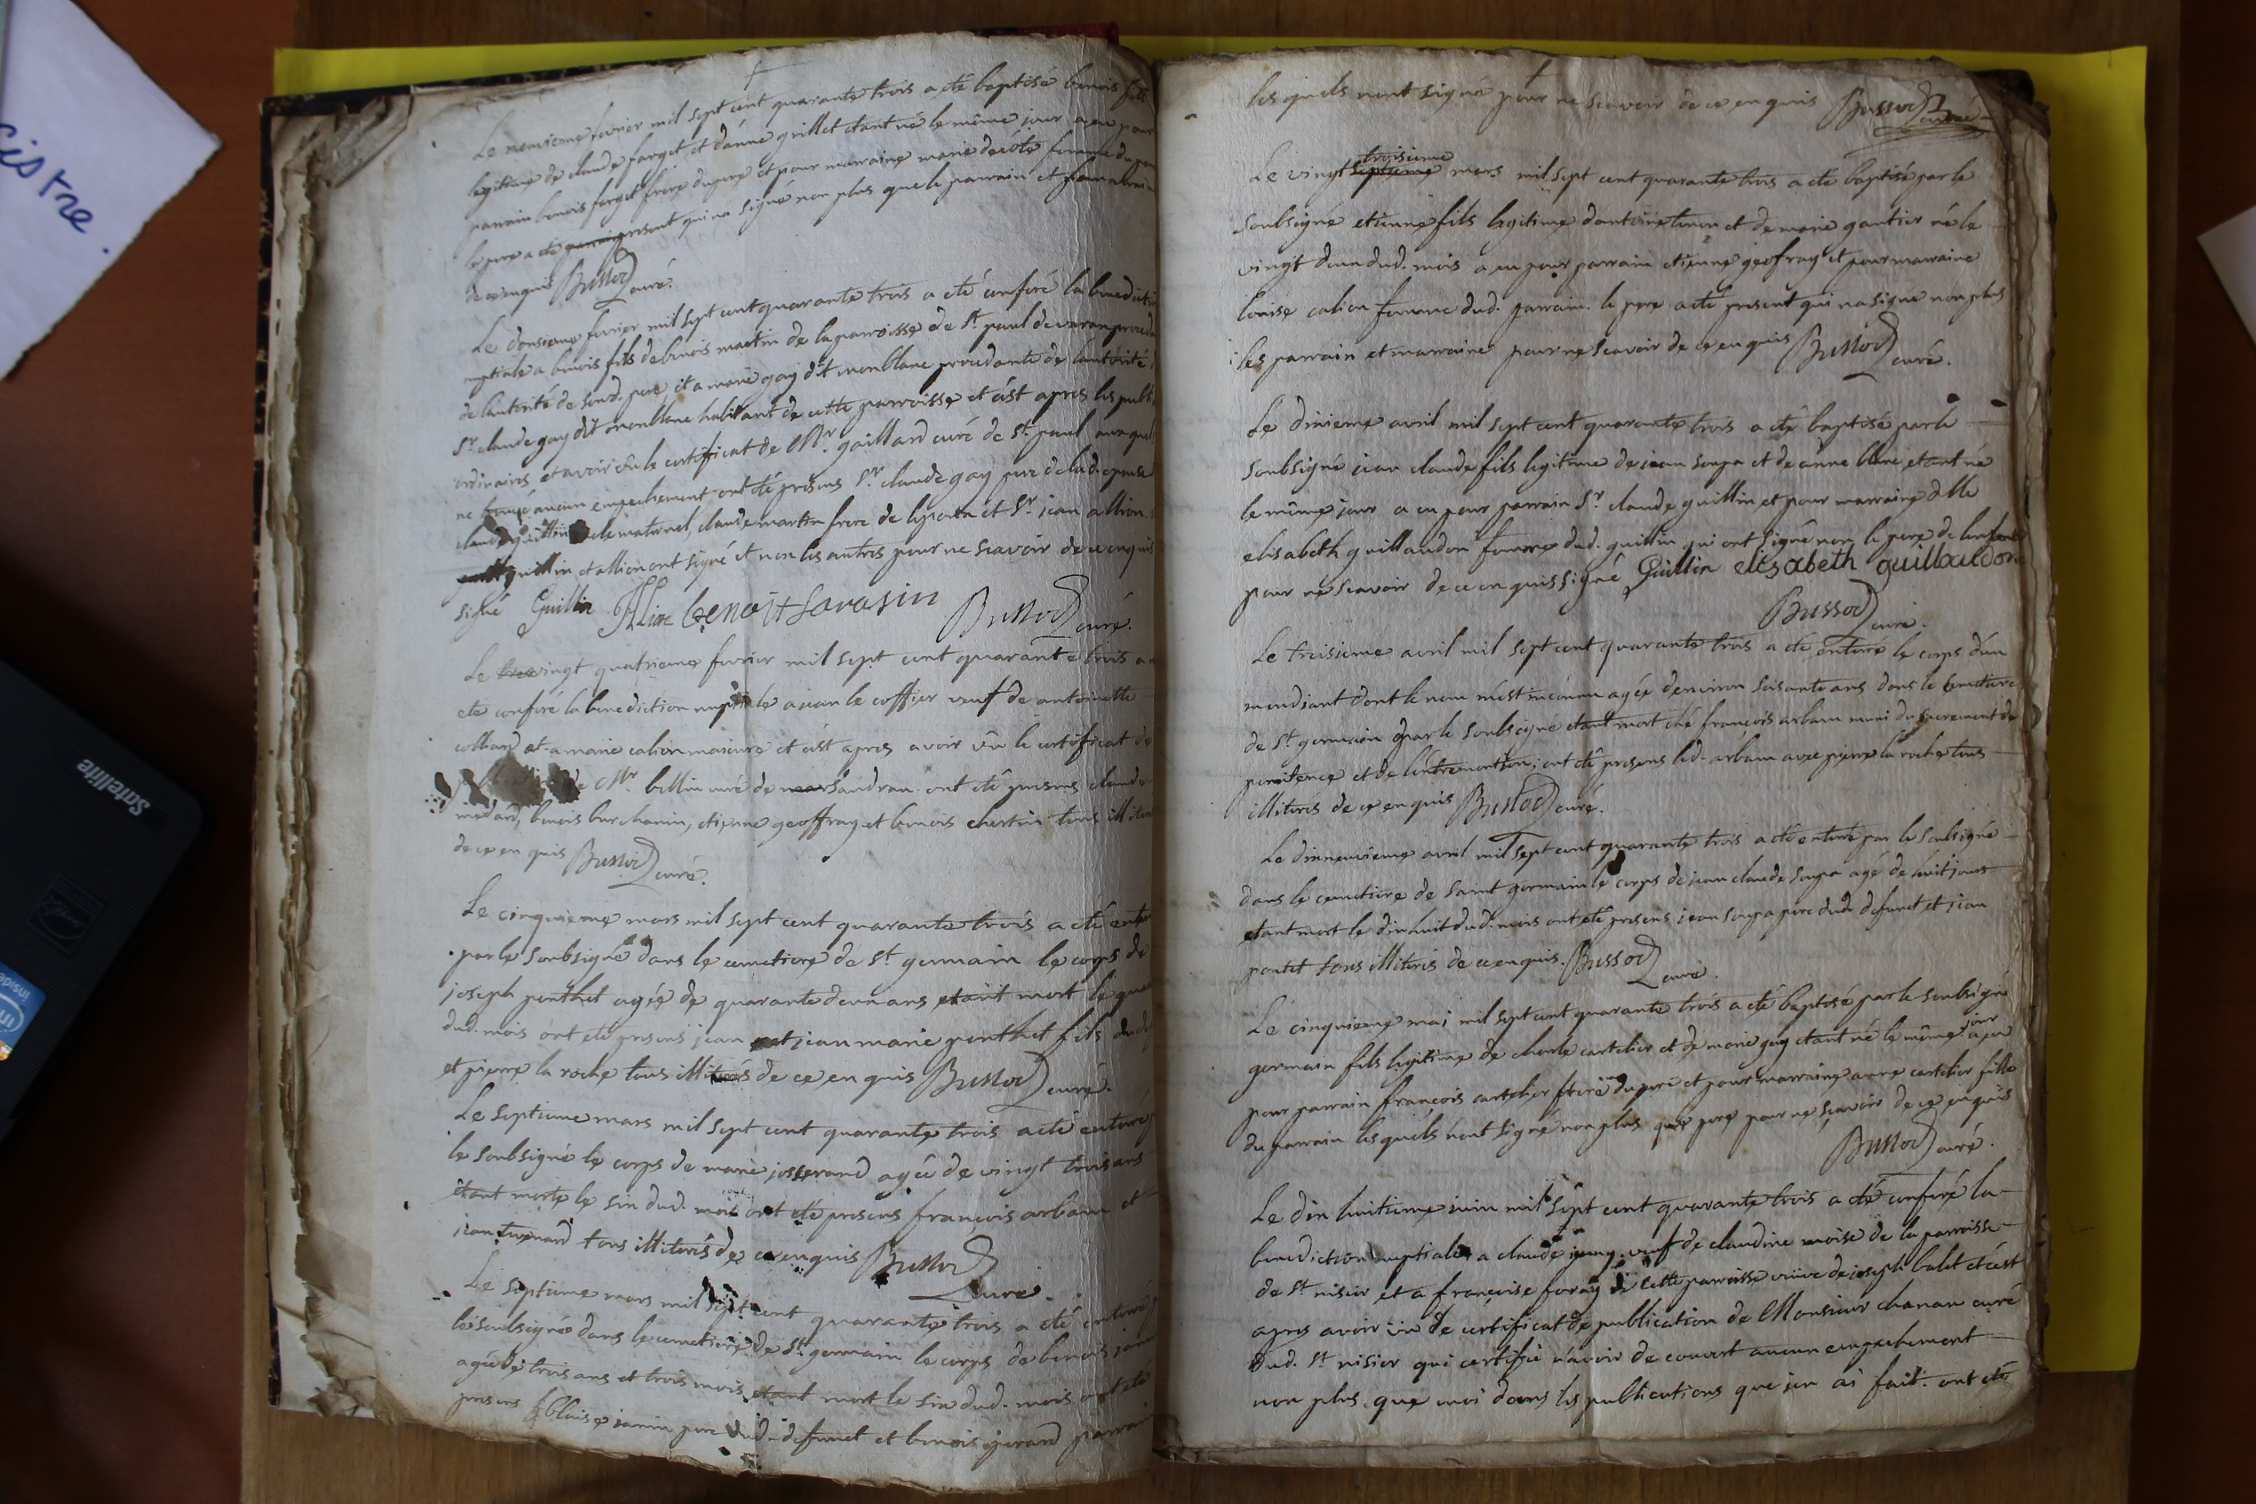 Le neuvieme fevrier mil sept cent quarante trois a eté baptisé benois fils
legitime de claude farget et d'anne grillet etant né le même jour a eu pour
parrain benois farget frere du pere et pour marraine marie decôte femme du
le pere a eté present qui na signé non plus que le parrain et
de ce enquis Bussod curé.
Le donsieme fevrier mil sept cent quarante trois a eté conferé la benedicti
nuptiale a benois fils de benois martin de la parroisse de St. paul de varan
de lautorité de son d. pere, et a marie gay dit monblanc procedante de lautorité
Sr. claude gay dit monblanc habitant de cette parroisse et c'est apres les publi
ordinaires et avoir vû le certificat de Mr. gaillard curé de St. paul
ne trouvé aucun empechement ont eté presens Sr. claude gay pere de lad. epouse
claude guillin oncle maternel, claude martin frere de lepoux et Sr. jean allion
guillin et allion ont signé et non les autres pour ne scavoir de ce enquis
signé Guillin Allion benoit Sarasin Bussod curé.
Le vingt quatrieme fevrier mil sept cent quarante trois a
eté conferé la benediction nuptiale a jean le coffier veuf de antoinette
colland et a marie calion maieure et c'est apres avoir vûe le certificat de
de Mr. bellin curé de Sandran ont eté presens claude
medard, benois burchanin, etienne geoffray et benois chertin tous illiteré
de ce en quis Bussod curé.
Le cinquieme mars mil sept cent quarante trois a eté enter
par le soubsigné dans le cemetiere de St. germain le corps de
joseph ponthet agée de quarante deux ans etant mort le
dud. mois ont eté presens jean et jean marie ponthet fils
et pierre la roche tous illiterés de ce en quis Bussod curé.
Le septieme mars mil sept cent quarante trois a eté enterré
le soubsigné le corps de marie josserand agée de vingt trois ans
étant morte le six dud. mois ont eté presens françois arbain et
jean tuenard tous illiterés de ce enquis Bussod
curé.
Le septieme mars mil sept cent quarante trois a eté enterré
le soubsigné dans le cemetiere de St. germain le corps de benois
agée de trois ans et trois mois etant mort le six dud. mois ont eté
presens blaise janin pere dud. defunct et benois girard parrain
les quels nont signé pour ne scavoir de ce en quis Bussod curé
troisieme
Le vingt septieme mars mil sept cent quarante trois a eté baptisé par le
soubsigné etienne fils legitime dantoine et de marie gautier né le
vingt deux dud. mois a eu pour parrain etienne geofray et pour marraine
louise calion femme dud. parrain. le pere a eté present qui na signé non plus
les parrain et marraine pour ne scavoir de ce en quis Bussod curé.
Le dixieme avril mil sept cent quarante trois a eté baptisé par le
soubsigné jean claude fils legitime de jean soupa et de anne blanc etant né
le même jour a eu pour parrain Sr. claude guillin et pour marraine dlle
elisabeth guillaudon femme dud. guillin qui ont signé non le pere de lenfant
pour ne scavoir de ce en quis signé Guillin elisabeth guillaudon
Bussod curé.
Le treisieme avril mil sept cent quarante trois a eté enteré le corps d'un
mendiant dont le nom m'est inconnu agée denviron soisante ans dans le cemetiere
de St. germain par le soubsigné etant mort ché françois arbain muni du sacrement de
penitence et de lextremontion; ont eté presens led. arbain avec pierre la roche tous
illiterés de ce en quis Bussod curé.
Le dixneuvieme avril mil sept cent quarante trois a eté enteré par le soubsigné
dans le cemetiere de saint germain le corps de jean claude soupa agé de huit jours
etant mort le dixhuit dud. mois ont eté presens jean soupa pere dud. defunct et jean
pontet tous illiterés de ce enquis. Bussod curé.
Le cinquieme mai mil sept cent quarante trois a eté baptisé par le soubsigné
germain fils legitime de charle cartelier et de marie guy etant né le même jour a eu
pour parrain françois cartelier frere du pere et pour marraine anne cartelier fille
du parrain lesquels n'ont signé non plus que pere pour ne sçavoir de ce enquis
Bussod curé.
Le dix huitieme juin mil sept cent quarante trois a eté conferé la
benediction nuptiale a claude veuf de claudine moise de la parroisse
de St. nisier et a françoise foray de cette parroisse veuve de joseph balet et c'est
apres avoir vû de certificat de publication de Monsieur chanau curé
dud. St. nisier qui certifie n'avoir de couvert aucun empechement
non plus que moi dans les publications que jen ai fait. ont eté
istre.
Satellite
intel
inside